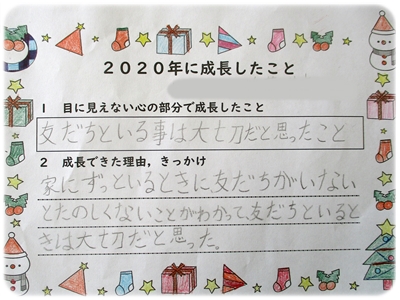 2020年に成長したこと
1 目に見えない心の部分で成長したこと
友だちといる事は大切だと思ったこと
2 成長できた理由，きっかけ
家にずっといるときに友だちがいない
とたのしくないことがわかって、友だちといると
きは大切だと思った。